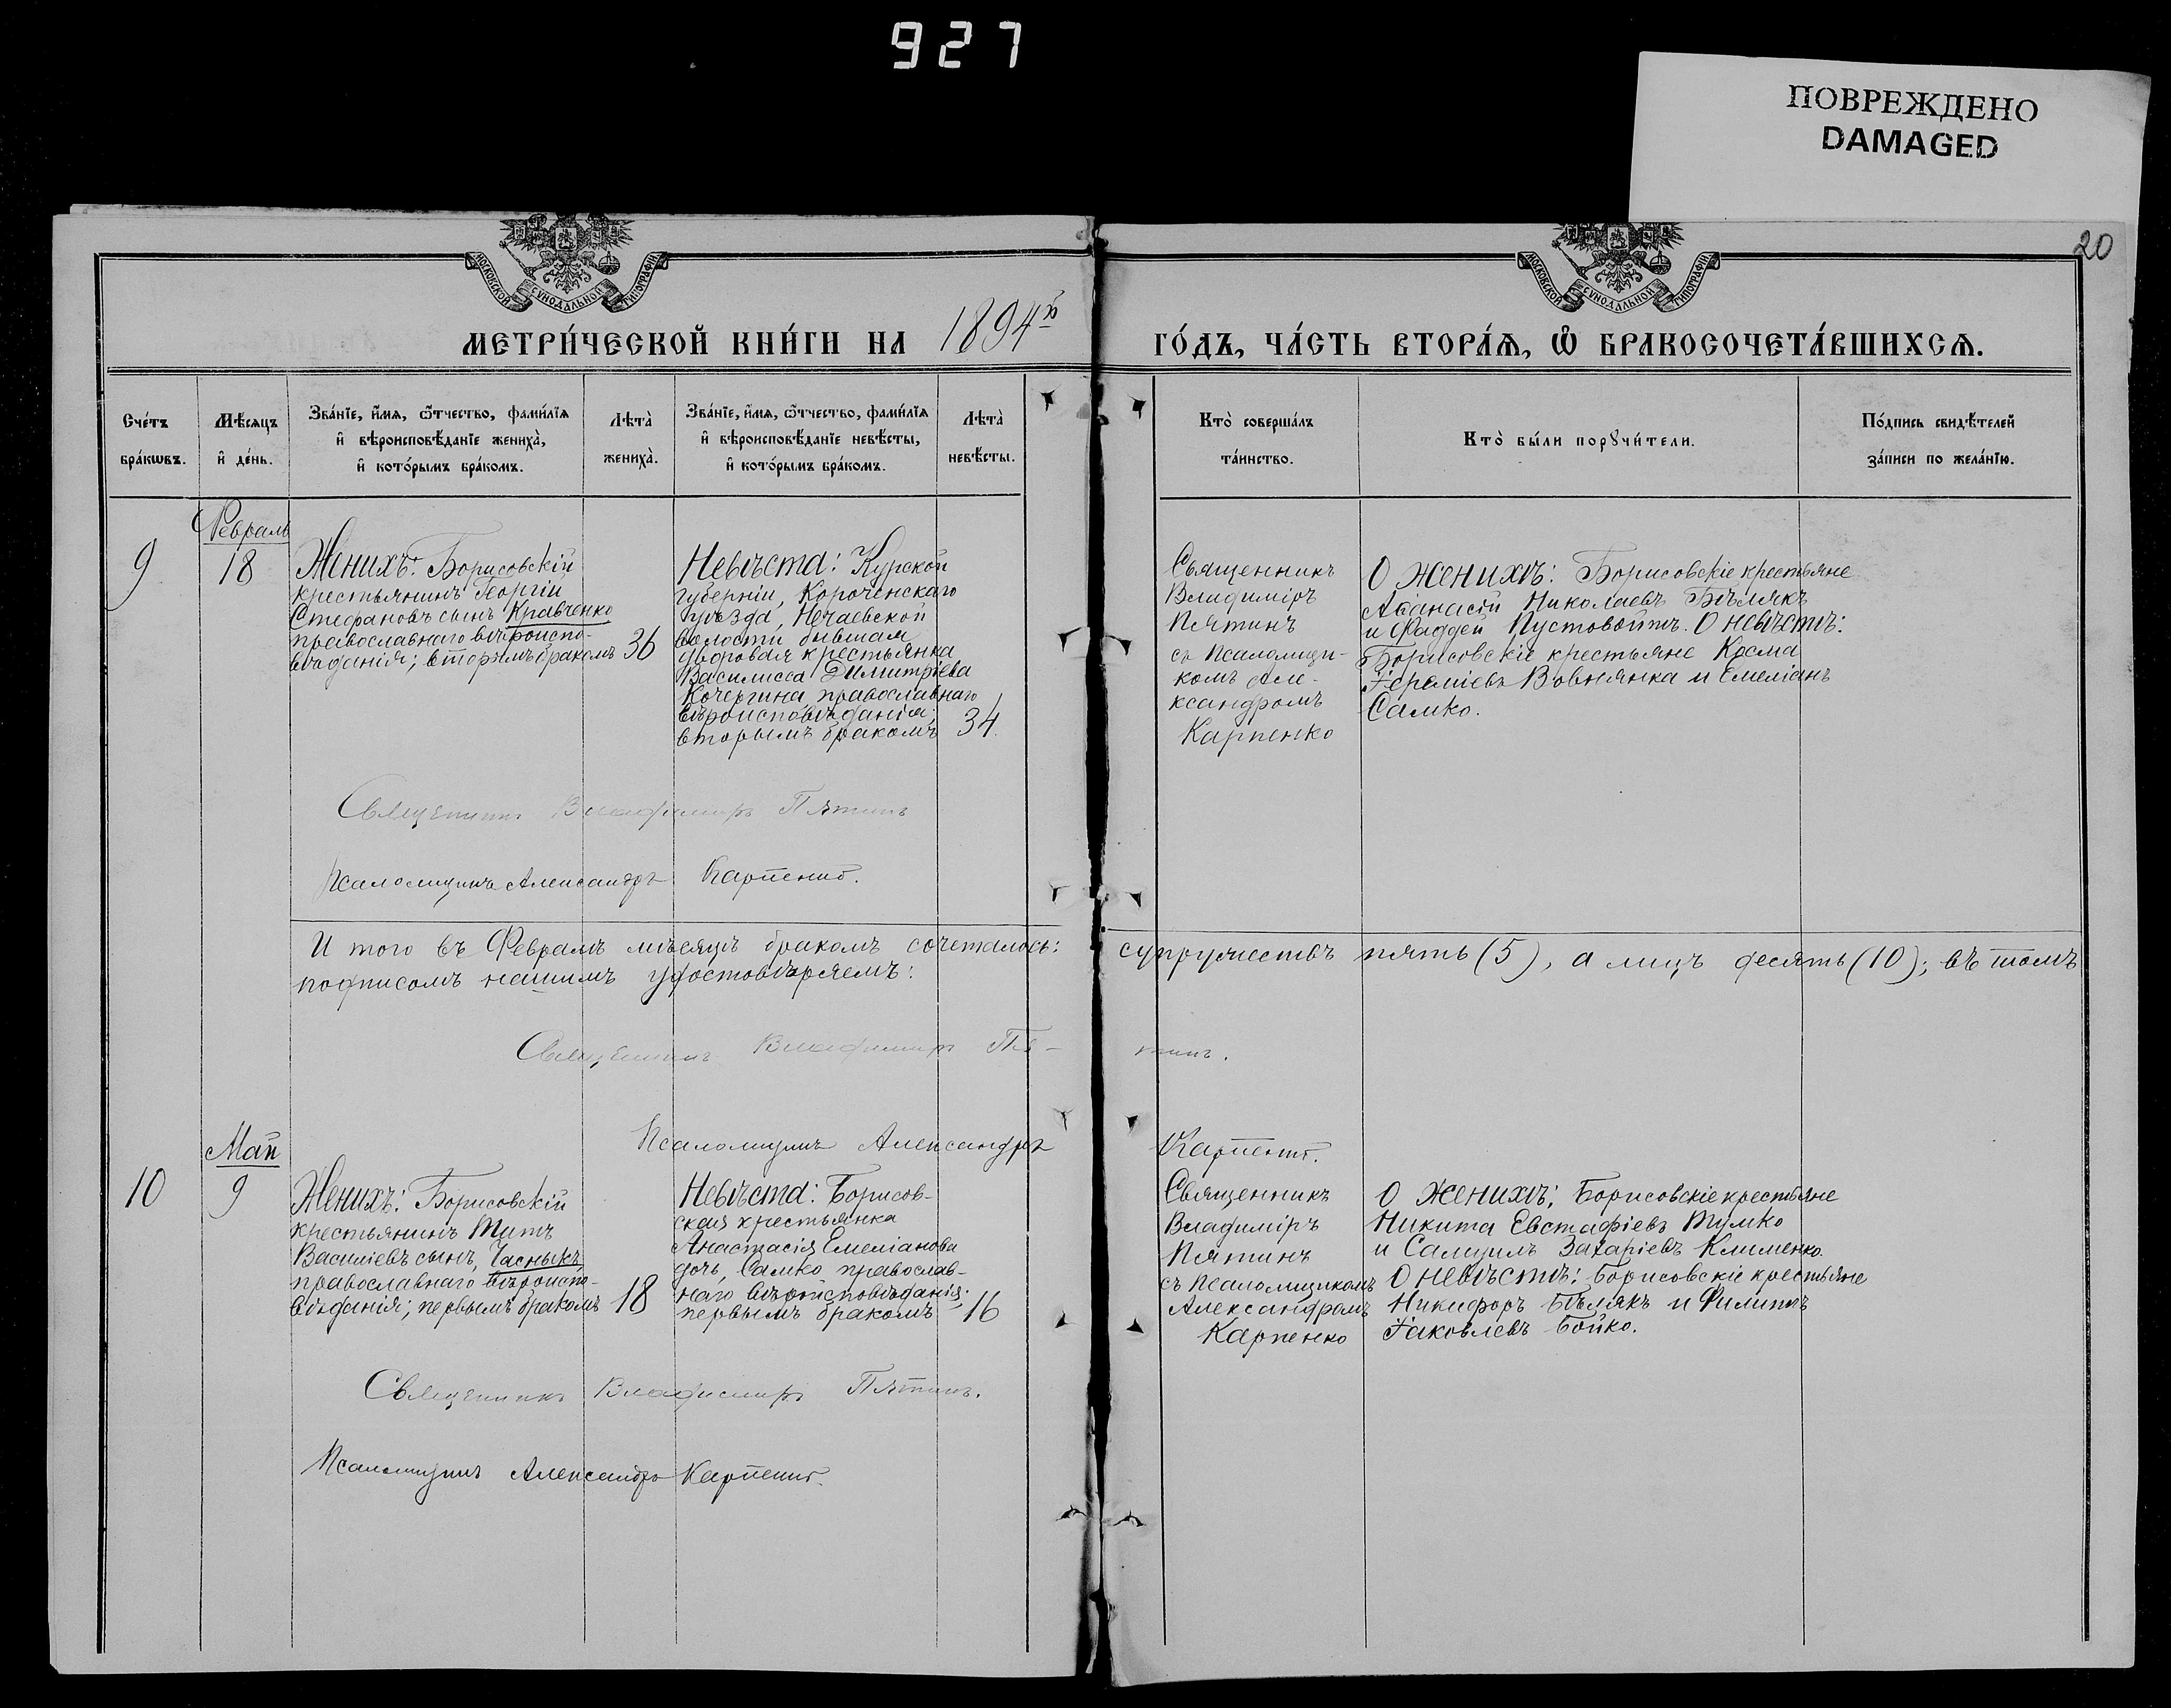 927
ПОВРЕЖДЕНО
DAMAGED
20
МОСКОВСКОЙ СѴНОДАЛЬНОЙ ТИПОГРАФІИ
МОСКОВСКОЙ СѴНОДАЛЬНОЙ ТИПОГРАФІИ
МЕТРИ́ЧЕСКОЙ КНИ́ГИ НА 1894й ГО́ДЪ, ЧА́СТЬ ВТОРА́Я, Ѡ҆ БРАКОСОЧЕТА́ВШИХСЯ.
Сче́тъ
бра́кωвъ.
Мѣ́сяцъ
и҆ де́нь.
Зва́нїе, и҆́мя, ѻ҆́тчество, фами́лїя
и҆ вѣроисповѣ́данїе жениха̀,
и҆ кото́рымъ бра́комъ.
Лѣта̀
жениха̀.
Зва́нїе, и҆́мя, ѻ҆́тчество, фами́лїя
и҆ вѣроисповѣ́данїе невѣ́сты,
и҆ кото́рымъ бра́комъ.
Лѣта̀
невѣ́сты.
Кто̀ соверша́лъ
та́инство.
Кто̀ бы́ли порꙋчи́тели.
По́дпись свидѣ́телей
за́писи по жела́нїю.
Февраль
9
18
Женихъ: Борисовскій
крестьянинъ Георгій
Стефановъ сынъ Кравченко
православнаго вѣроиспо-
вѣданія; вторымъ бракомъ
36
Невѣста: Курской
губерніи, Короченскаго
уѣзда, Нечаевской
волости бывшая
дворовая крестьянка
Василисса Димитріева
Кочергина, православнаго
вѣроисповѣданія;
вторымъ бракомъ
34.
Священникъ
Владиміръ
Пятинъ
съ псаломщи-
комъ Але-
ксандромъ
Карпенко
О женихѣ: Борисовскіе крестьяне
Аѳанасій Николаевъ Бѣлякъ
и Фаддей Пустовойтъ. О невѣстѣ:
Борисовскіе крестьяне Косма
Іереміевъ Вовнянка и Емеліанъ
Самко.
Священникъ Владимиръ Пятинъ
Псаломщикъ Александръ Карпенко.
И того въ Февралѣ мѣсяцѣ бракомъ сочеталось: супружествъ пять (5), а лицъ десять (10); въ томъ
подписомъ нашимъ удостовѣряемъ:
Священникъ Владимиръ Пя- тинъ.
Псаломщикъ Александръ Карпенко.
Май
10
9
Женихъ: Борисовскій
крестьянинъ Титъ
Василіевъ сынъ, Часныкъ,
православнаго вѣроиспо-
вѣданія; первымъ бракомъ
18
Невѣста: Борисов-
ская крестьянка
Анастасія Емеліанова
дочь, Самко православ-
наго вѣроисповѣданія;
первымъ бракомъ
16
Священникъ
Владиміръ
Пятинъ
съ псаломщикомъ
Александромъ
Карпенко
О женихѣ: Борисовскіе крестьяне
Никита Евстафіевъ Тумко
и Самуилъ Захаріевъ Клименко.
О невѣстѣ: Борисовскіе крестьяне
Никифоръ Бѣлякъ и Филиппъ
Іаковлевъ Бойко.
Священникъ Владимиръ Пятинъ.
Псаломщикъ Александръ Карпенко.